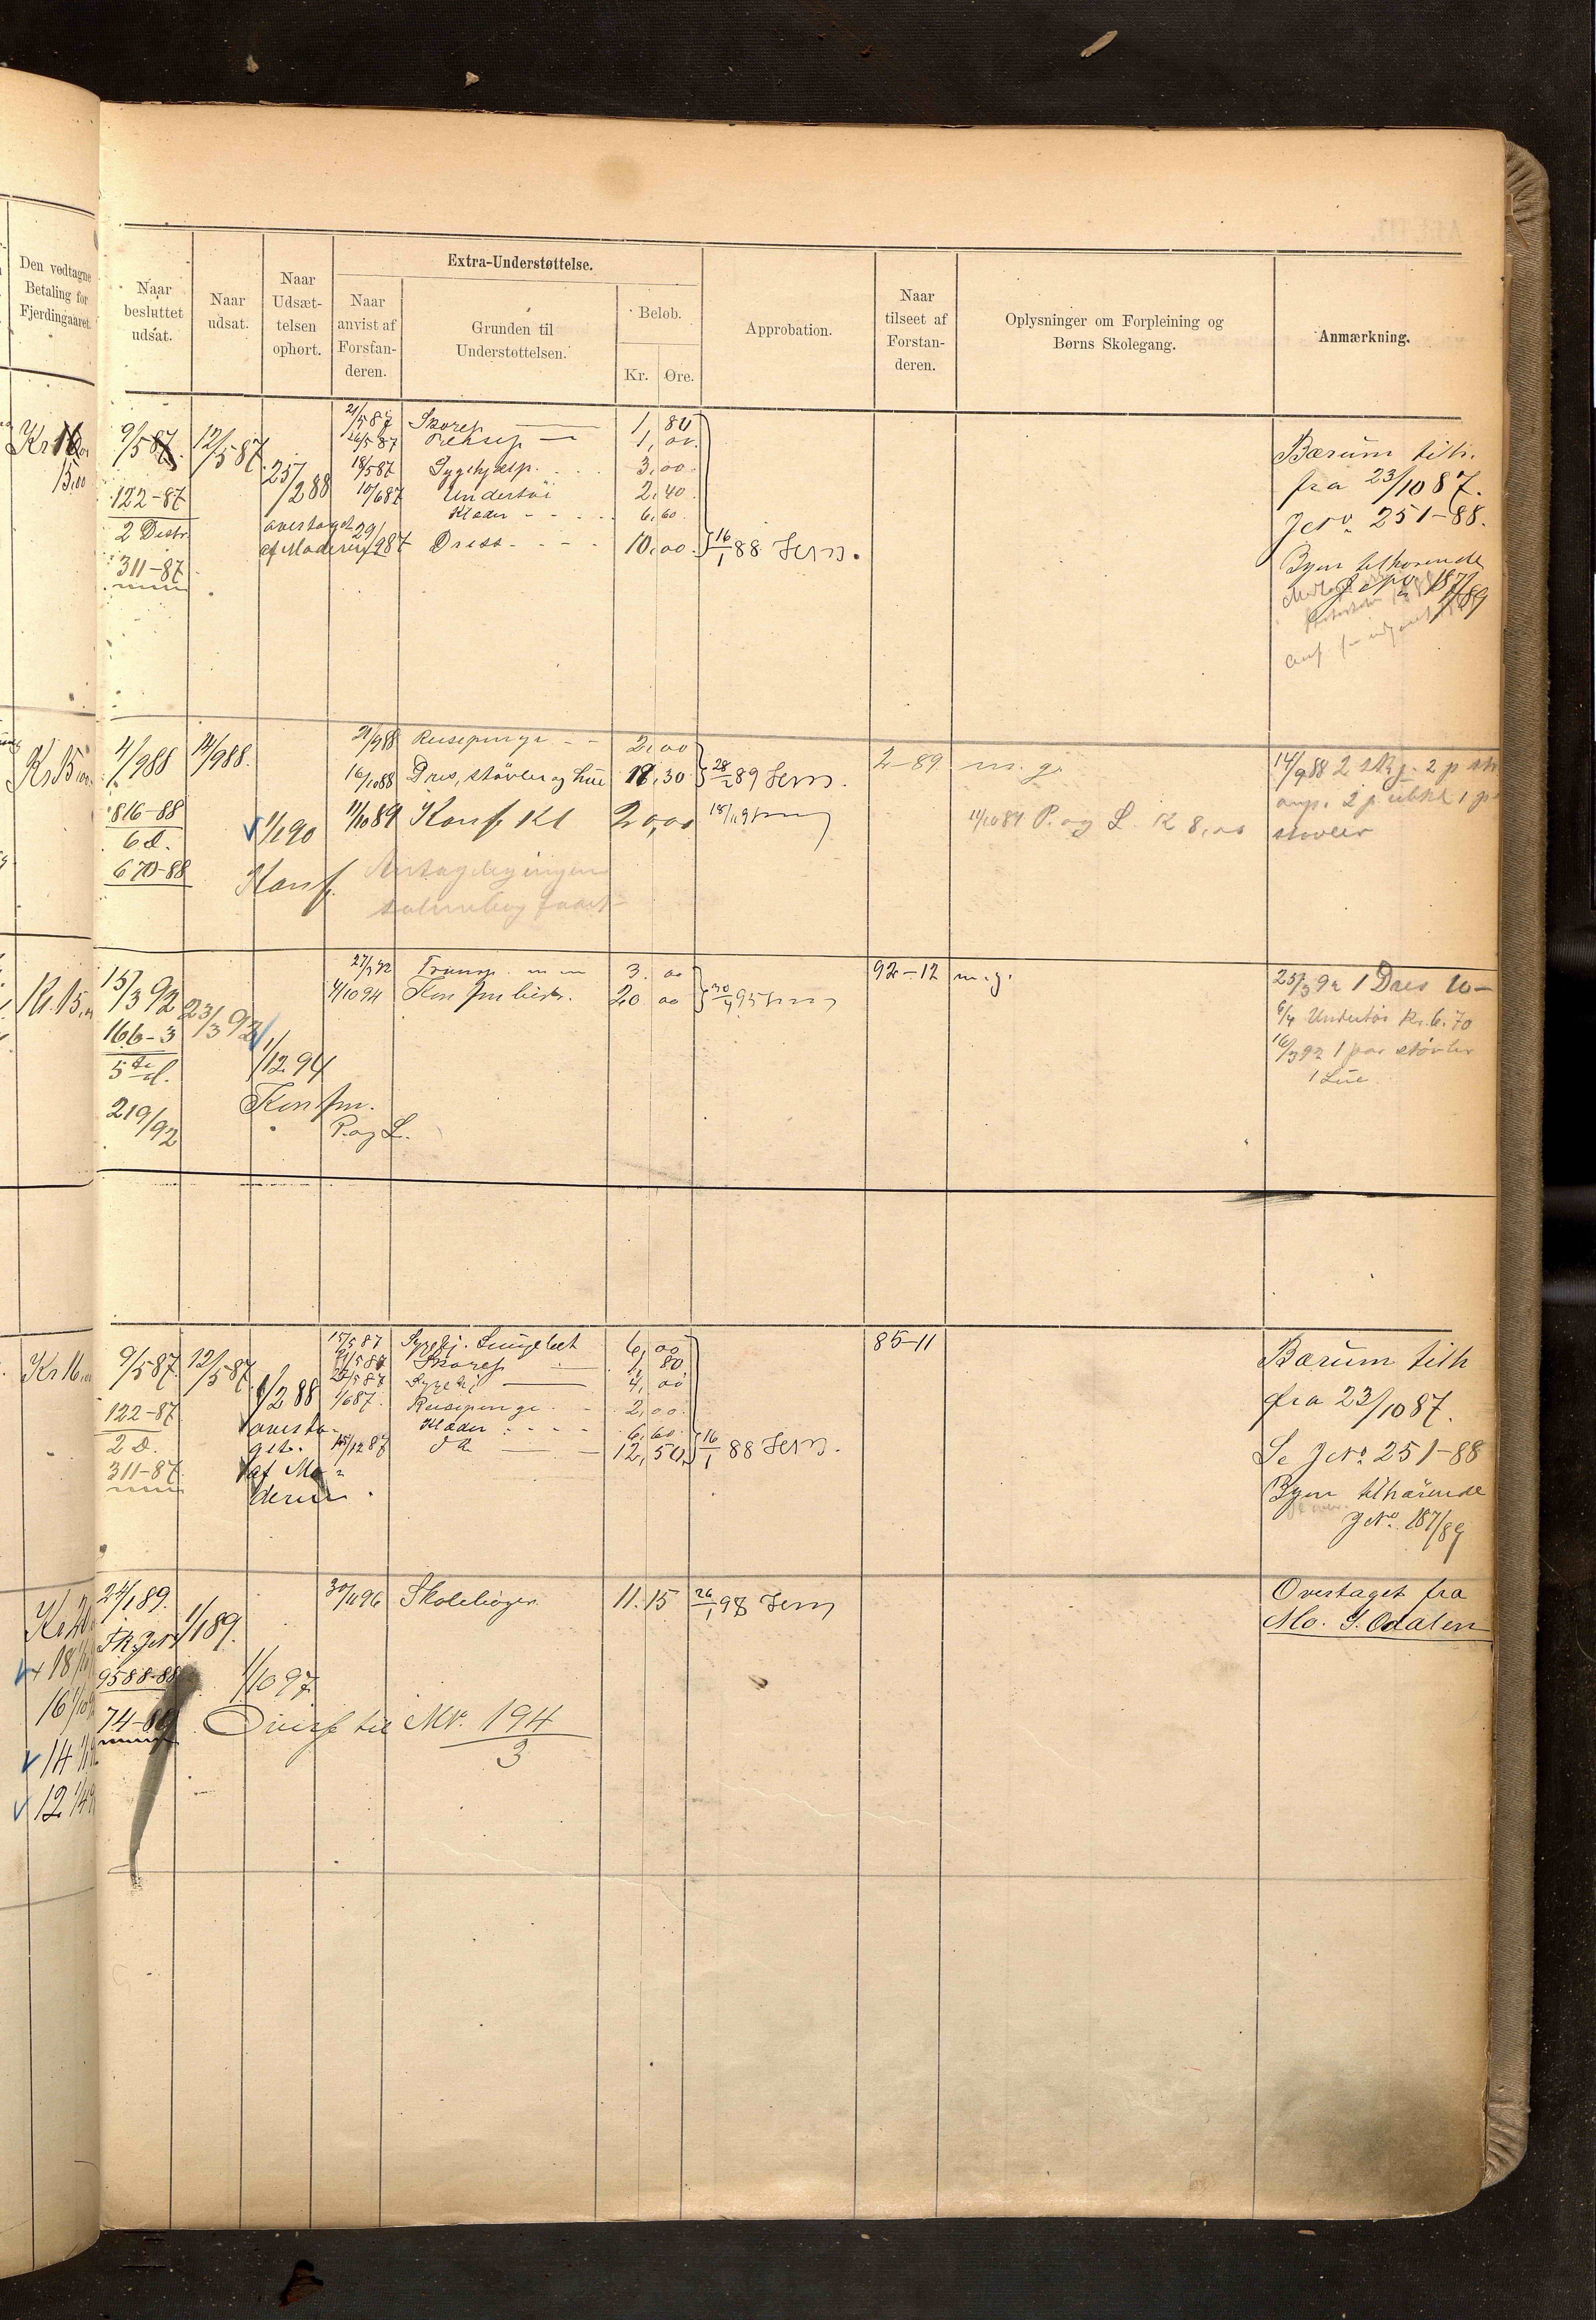 Den vedtagne
Betaling for
Fjerdingaaret.
Naar
besluttet
udsat.
Naar
udsat.
Naar
Udsæt-
telsen
ophørt.
Extra-Understøttelse.
Naar
anvist af
Forstan-
deren.
Grunden til
Understøttelsen.
Beløb.
Kr. Øre.
Approbation.
Naar
tilseet af
Forstan-
deren.
Oplysninger om Forpleining og
Børns Skolegang.
Anmærkning.
Kr 16
15,00
9/5 87
12/5 87
122-87
2 Distr
311-87
25/2 88
overtaget
af Moderen
21/5 87 Skorep 1, 80
26/5 87 1, 00
18/5 87 Sygehjælp. 3,00
10/6 87 Undertöi 2,40
Klæder 6,60
29/9 87 Dress 10,00
16/1 88
Bærum tilh.
fra 23/10 87.
J No 251-88.
Byen tilhørende
J No 187/89
Kr 15,00
4/9 88
14/9 88.
816-88
6 d.
670-88
1/1 90
Konf.
21/9 88 Reisepenge 2,00
16/10 88 Dres, støvler og hue 18,30
11/10 89 Konf. Kl 20,00
28/2 89
2-89 m. g.
11/10 89 P. og L. K 8,00
14/9 88 2 skj. 2 p str
1 p
støvler
Kr. 15,00
15/3 92
23/3 92
166-3
5te d.
219/92
1/12 94
Konfm.
P. og L.
3. 00
4/10 94 20 00
30/1 95
92-12 m. g.
25/3 92 1 Dres 10-
6/4 Undertøi Kr. 6.70
16/3 92 1 par støvler
1 Lue.
Kr 16,00
9/5 87.
12/5 87.
122-87.
2 D.
311-87.
1/2 88
overta-
get.
af Mo-
deren.
15/5 87 6, 00
21/5 87 Skorep 1, 80
4, 00
1/6 87. Reisepenge 2,00
Klæder 6,60
15/12 87 do 12,50
16/1 88
85-11
Bærum tilh
fra 23/10 87.
Se J No 251-88
Byen tilhörende
J No. 187/89
Kr 20
24/1 89.
1/1 89.
9588-88
74-89
1/10 97
Overf til Nr. 194/3
30/11 96 Skolebøger 11.15
26/1 98
Overtaget fra
Mo. S. Odalen
18
16
14
12